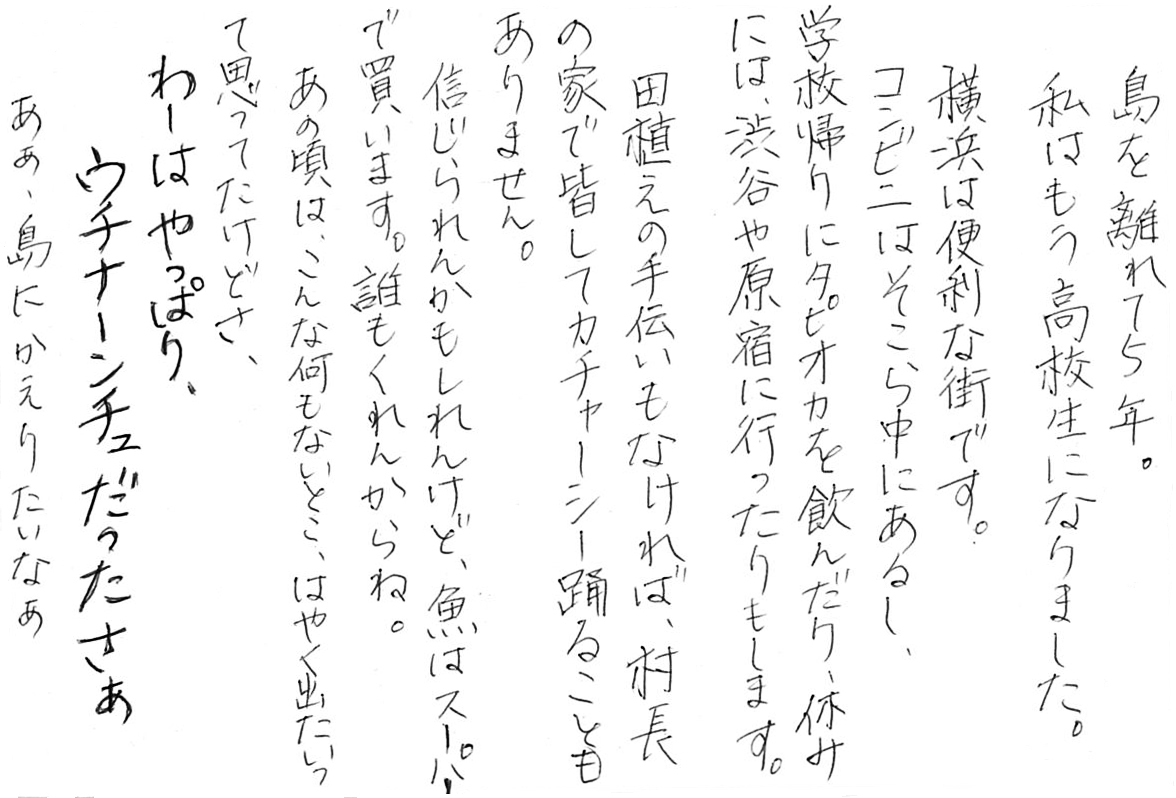 島を離れて5年。
私はもう高校生になりました。
横浜は便利な街です。
コンビニはそこら中にあるし、
学校帰りにタピオカを飲んだり、休み
には、渋谷や原宿に行ったりもします。
田植えの手伝いもなければ、村長
の家で皆してカチャーシー踊ることも
ありません。
信じられんかもしれんけど、魚はスーパー
で買います。誰もくれんからね。
あの頃は、こんな何もないとこ、はやく出たいっ
て思ってたけどさ、
わーはやっぱり、
ウチナーンチュだったさぁ
あぁ、島にかえりたいなぁ